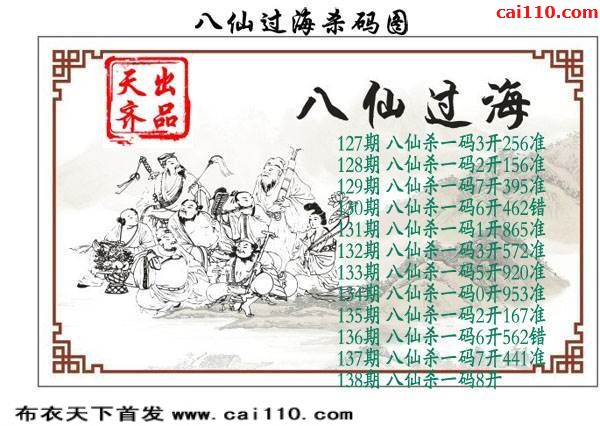 八仙过海杀码图
cai110.com
天齐
出品
八仙过海
127期 八仙杀一码3开256准
128期 八仙杀一码2开156准
129期 八仙杀一码7开395准
130期 八仙杀一码6开462错
131期 八仙杀一码1开865准
132期 八仙杀一码3开572准
133期 八仙杀一码5开920准
134期 八仙杀一码0开953准
135期 八仙杀一码2开167准
136期 八仙杀一码6开562错
137期 八仙杀一码7开441准
138期 八仙杀一码8开
布衣天下首发 www.cai110.com